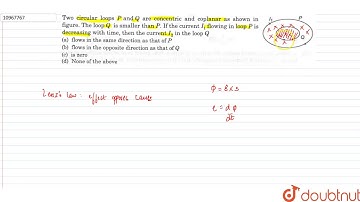 10967767
Two circular loops P and Q are concentric and coplanar as shown in
figure. The loop Q is smaller than P. If the current I₁ flowing in loop P is
decreasing with time, then the current I₂ in the loop Q
(a) flows in the same direction as that of P
(b) flows in the opposite direction as that of Q
(c) is zero
(d) None of the above
P
Q
Lenz's law : effect opposes cause
e = dφ
dt
doubtnut